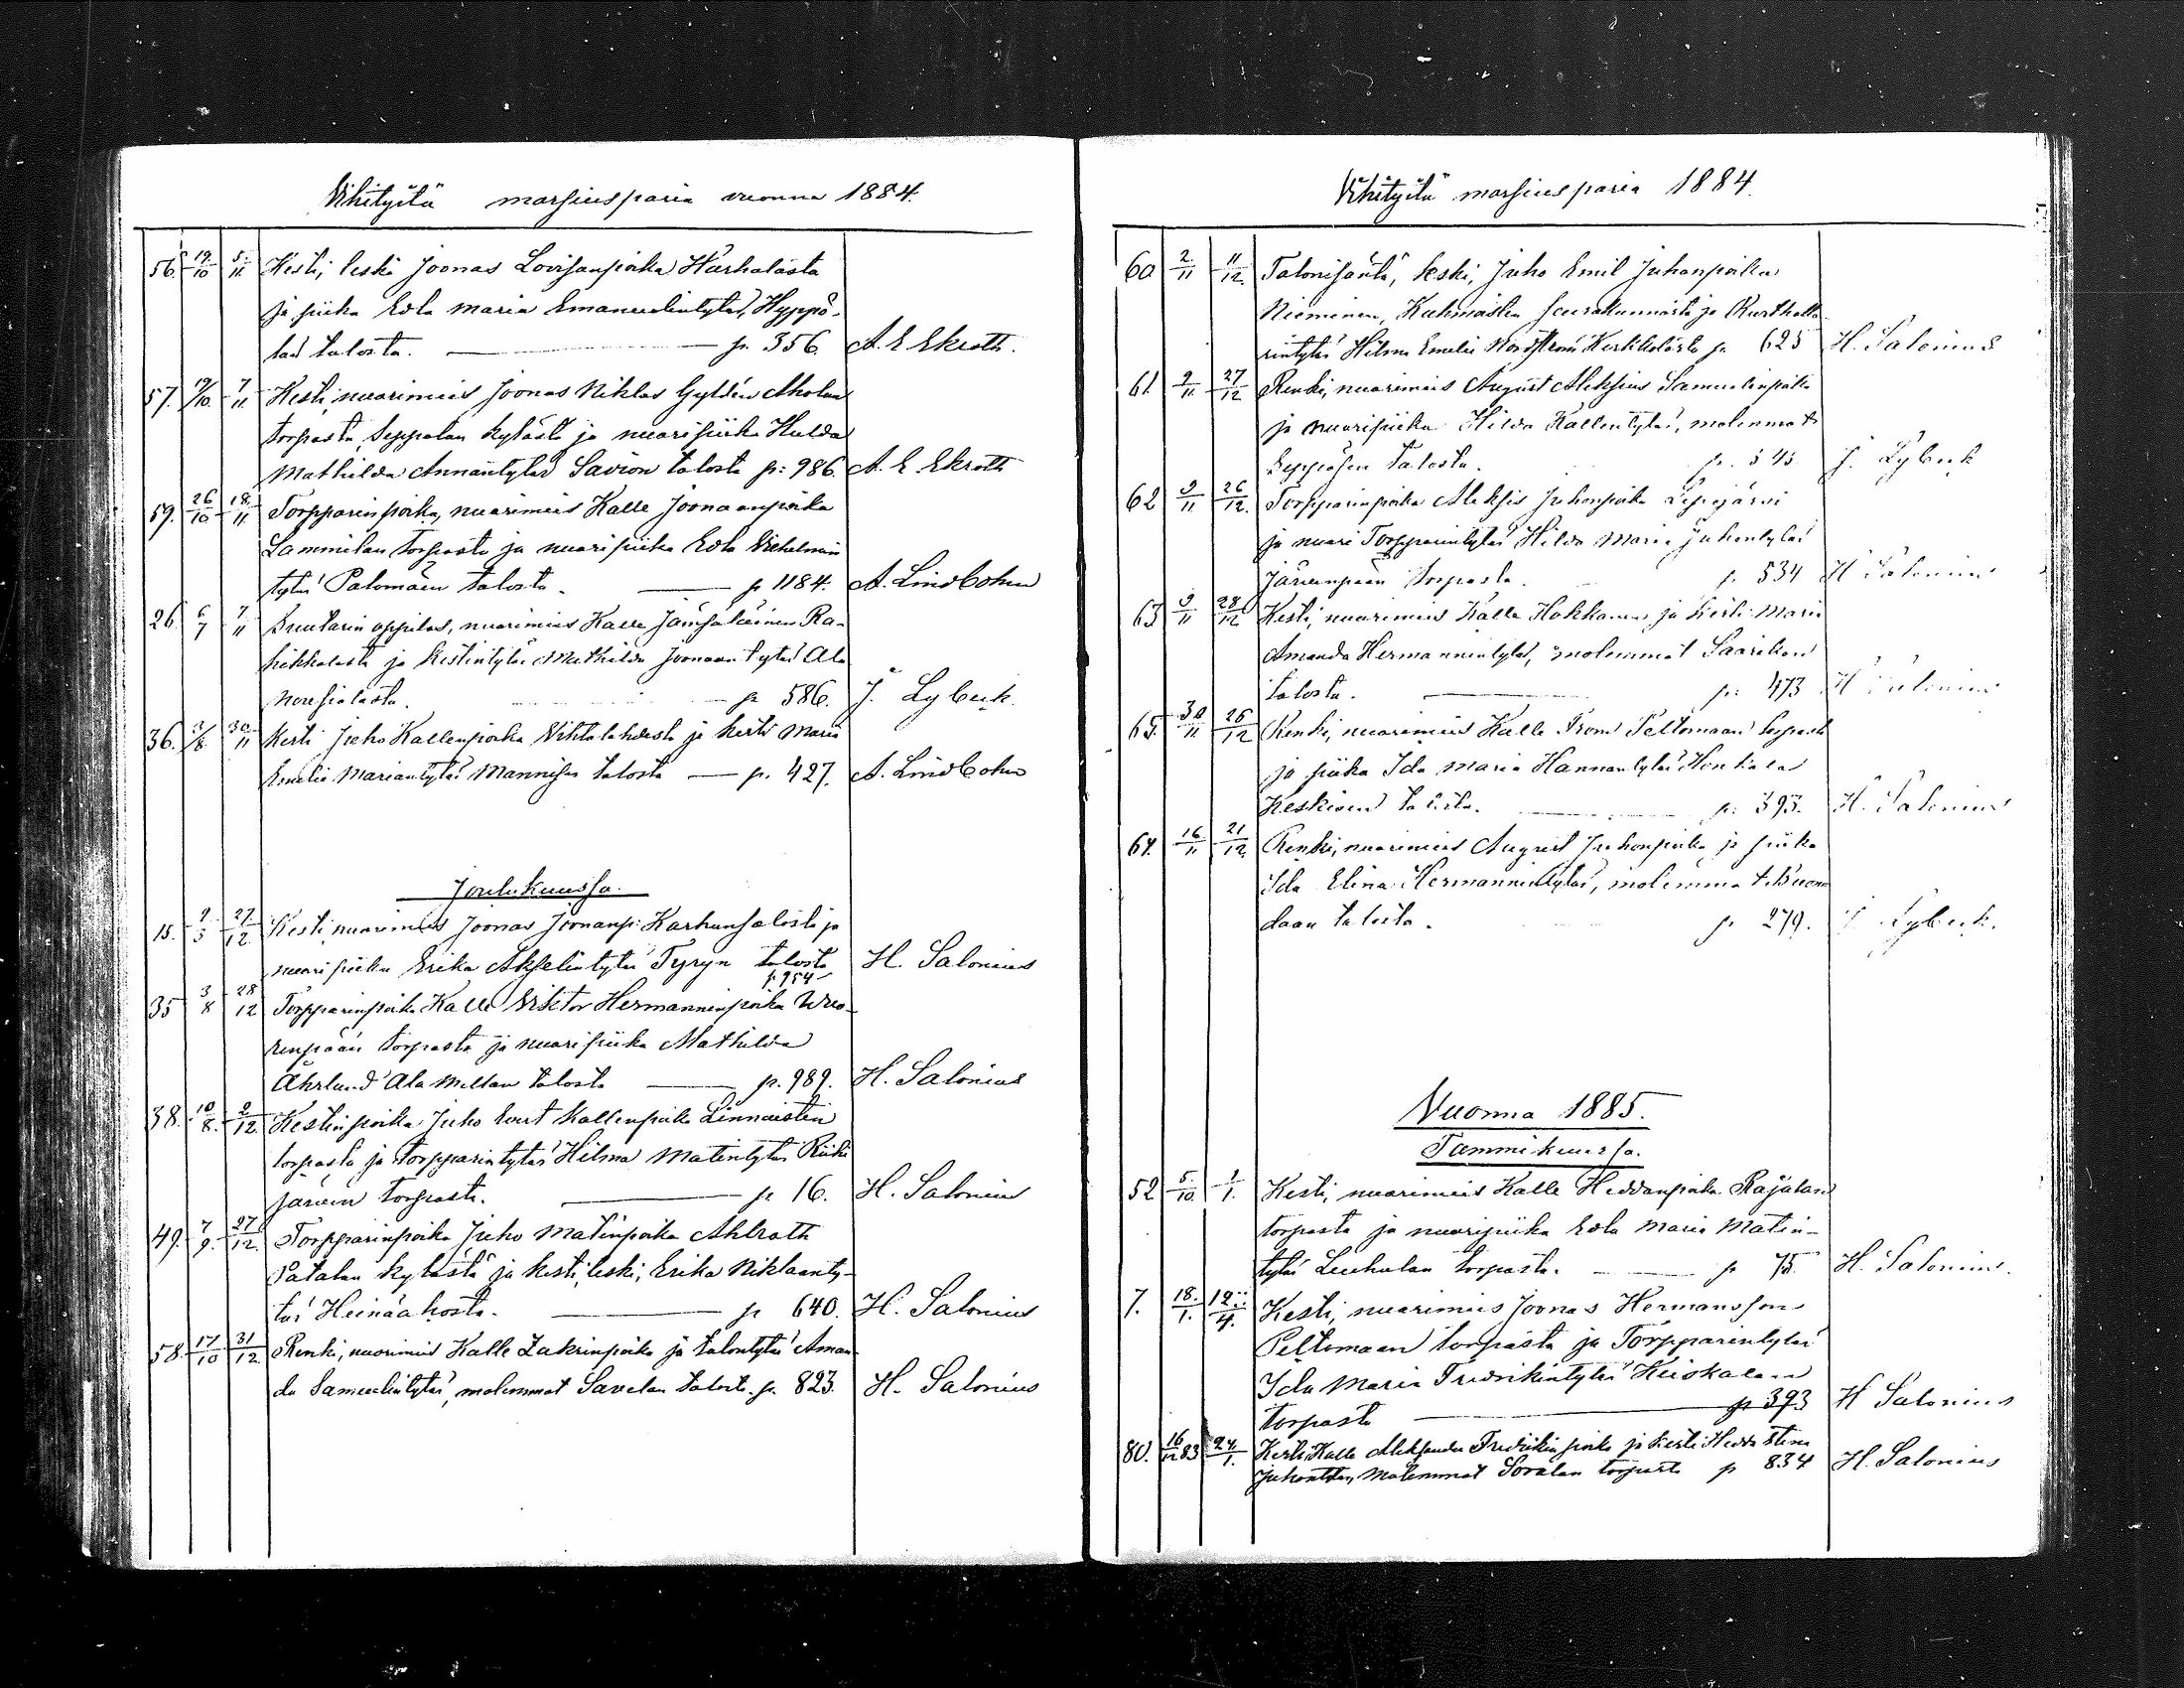 Vihityitä morsiusparia vuonna 1884.
56. 19/10 5/11 Kesti, leski Joonas Lovisanpoika Härkälästä
ja piika Eola Maria Emanuelintytär, Hyppö-
län talosta. — p. 356. A. E Ekroth.
57. 19/10. 7/11. Kesti, nuorimies Joonas Niklas Gyldén Aholan
torpasta Seppolan kylästä ja nuoripiika Hulda
Mathilda Annantytär Savion talosta p: 986. A. E Ekroth
59. 26/10 18/11 Torpparinpoika, nuorimies Kalle Joonaanpoika
Lammilan torpasta ja nuoripiika Eola Vilhelmin
tytär Palomäen talosta. — p 1184. A. Lindbohm
26. 6/7 7/11 Suutarin oppilas, nuorimies Kalle Jämsäläinen Ra-
hikkalasta ja Kestintytär Mathilda Joonaantytär Ala
nousialasta. — p 586. J. Lybeck
36. 3/8. 30/11 Kesti Juho Kallenpoika Vihtalahdesta ja kesti Maria
Emilia Mariantytär Mannisen talosta — p. 427. A. Lindbohm
Joulukuussa.
15. 9/3 27/12 Kesti, nuorimies Joonas Joonanp: Karhunsalosta ja
nuoripiika Erika Akselintytär Tyryn talosta H. Salonius
p. 954
35 3/8 28/12 Torpparinpoika Kalle Viktor Hermanninpoika Wuo-
renpään torpasta ja nuoripiika Mathilda
Åhrlund Ala Mellan talosta — p. 989. H. Salonius
38. 10/8. 9/12. Kestinpoika Juho Evert Kallenpoika Linnaisten
torpasta ja torpparintytär Hilma Matintytär Riihi
järven torpasta. — p 16. H. Salonius
49. 7/9. 27/12. Torpparinpoika Juho Matinpoika Ahlroth
Patalan kylästä ja kesti, leski, Erika Niklaanty-
tär Heinäahosta. — p 640. H. Salonius
58. 17/10 31/12. Renki, nuorimies Kalle Zakrinpoika ja talontytär Aman
da Samuelintytär, molemmat Savelan talosta. p. 823. H. Salonius
Vihityitä morsiusparia 1884.
60 2/11 11/12. Talonisäntä, leski, Juho Emil Juhanpoika
Nieminen, Kuhmoisten seurakunnasta ja Rustholla
rintytär Hilma Emelie Nordström Kerkkolasta p 625 H. Salonius
61. 9/11. 27/12 Renki, nuorimies August Aleksius Samuelinpoika
ja nuoripiika Hilda Kallentytär, molemmat
Seppäsen talosta. p. 545 J. Lybeck
62 9/11 26/12. Torpparinpoika Aleksis Juhonpoika Lepojärvi
ja nuori Torpparintytär Hilda Maria Juhontytär
Järvenpään torpasta. p. 534 H Salonius
63 9/11 28/12 Kesti, nuorimies Kalle Hokkanen ja kesti Maria
Amanda Hermannintytär, molemmat Saarikon
talosta. — p: 473 H Salonius
65. 30/11 26/12 Renki, nuorimies Kalle From Peltomaan torpasta
ja piika Ida Maria Hannantytär Honkalan
Keskisen talosta. — p: 393. H. Salonius
64. 16/11 21/12. Renki, nuorimies August Juhonpoika ja piika
Ida Elina Hermannintytär, molemmat
daan talosta. p 279. J Lybeck.
Vuonna 1885.
Tammikuussa.
52 5/10. 1/1. Kesti, nuorimies Kalle Heddanpoika Rajalan
torpasta ja nuoripiika Eola Maria Matin-
tytär Leuhulan torpasta. — p 75 H. Salonius.
7. 18/1. 12/4. Kesti, nuorimies Joonas Hermansson
Peltomaan torpasta ja Torpparintytär
Ida Maria Fredrikintytär Heiskalan
torpasta — p 393 H Salonius
80. 16/12 83 24/1. Kesti Kalle Aleksander Fredrikinpoika ja kesti Hedda Stina
Juhontytär, molemmat Soralan torpasta p 834 H. Salonius